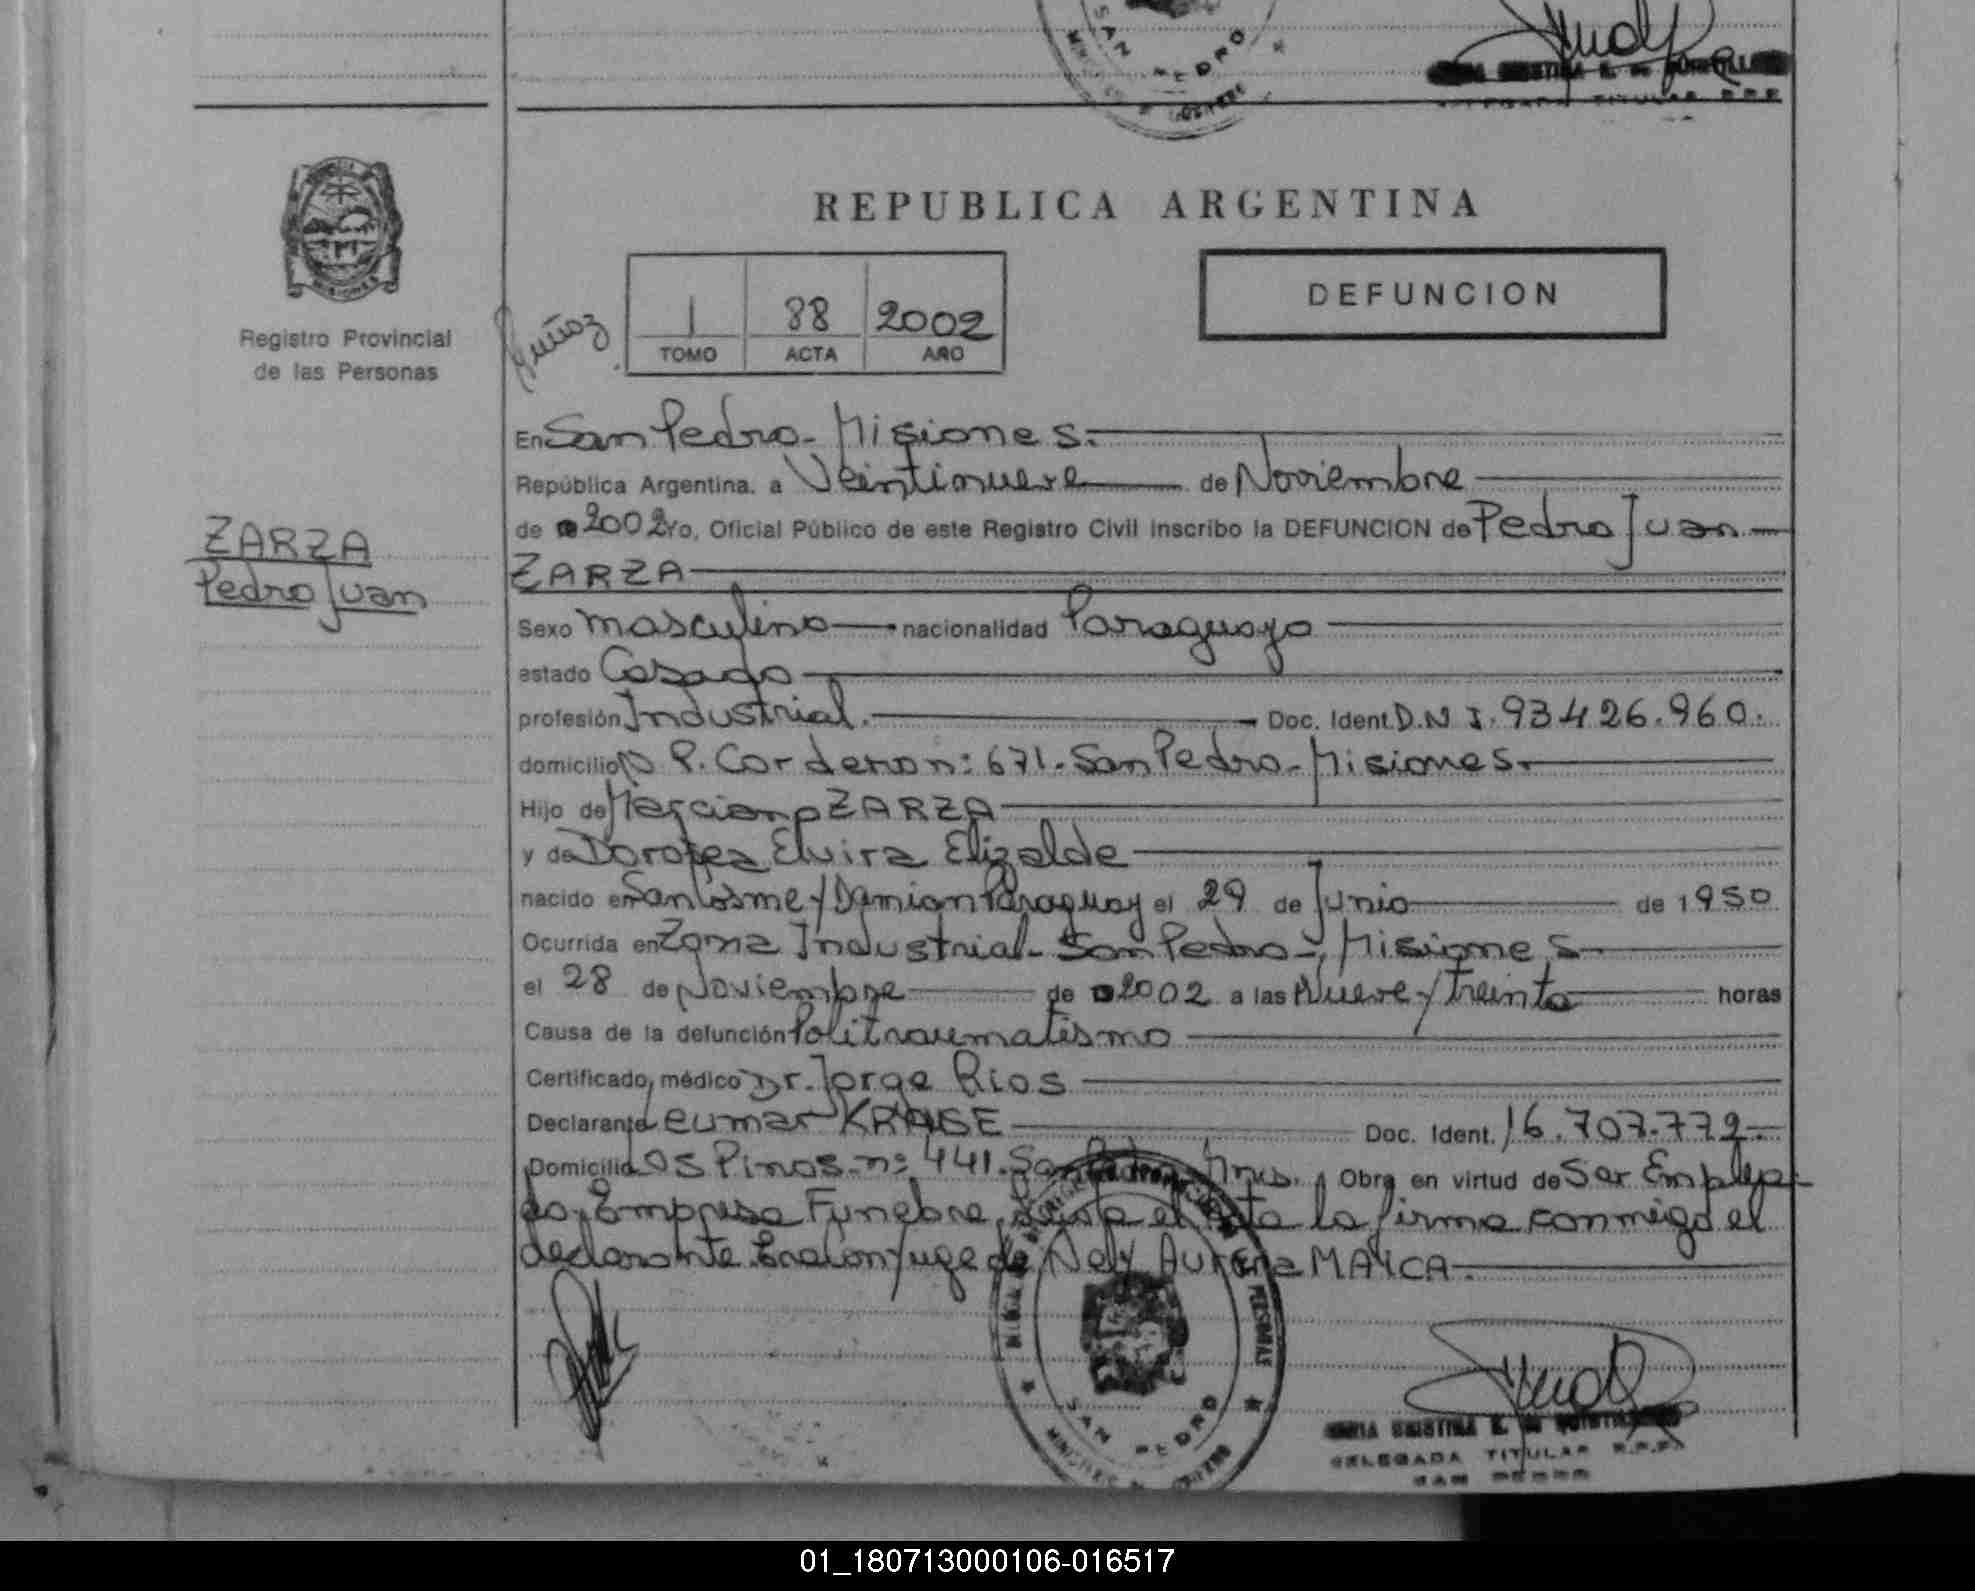 SAN PEDRO
REPUBLICA ARGENTINA
DEFUNCION
1 88 2002
TOMO ACTA AÑO
Muñoz
Registro Provincial
de las Personas
ZARZA
Pedro Juan
En San Pedro - Misiones.
República Argentina, a Veintinueve de Noviembre
de 2002 Yo, Oficial Público de este Registro Civil inscribo la DEFUNCION de Pedro Juan
ZARZA
Sexo masculino nacionalidad Paraguayo
estado Casado
profesión Industrial. Doc. Ident. D.N I. 93426.960.
domicilio P. Cordero n: 671. San Pedro - Misiones.
Hijo de Marciano ZARZA
y de Dorotea Elvira Elizalde
nacido en San Cosme y Damian Paraguay el 29 de Junio de 1950
Ocurrida en Zona Industrial - San Pedro - Misiones
el 28 de Noviembre de 2002 a las Nueve y treinta horas
Causa de la defunción Politraumatismo
Certificado médico Dr. Jorge Rios
Declarante Leumar KRAUSE Doc. Ident. 16.707.772.
Domicilio Los Pinos n: 441. San Pedro Mnes. Obra en virtud de Ser Emplea-
do Empresa Funebre, Leida el Acta la firma conmigo el
declarante. Era Conyuge de Nely Aurora MAYCA.
SAN PEDRO
DELEGADA TITULAR R.P.P.
SAN PEDRO
01_180713000106-016517